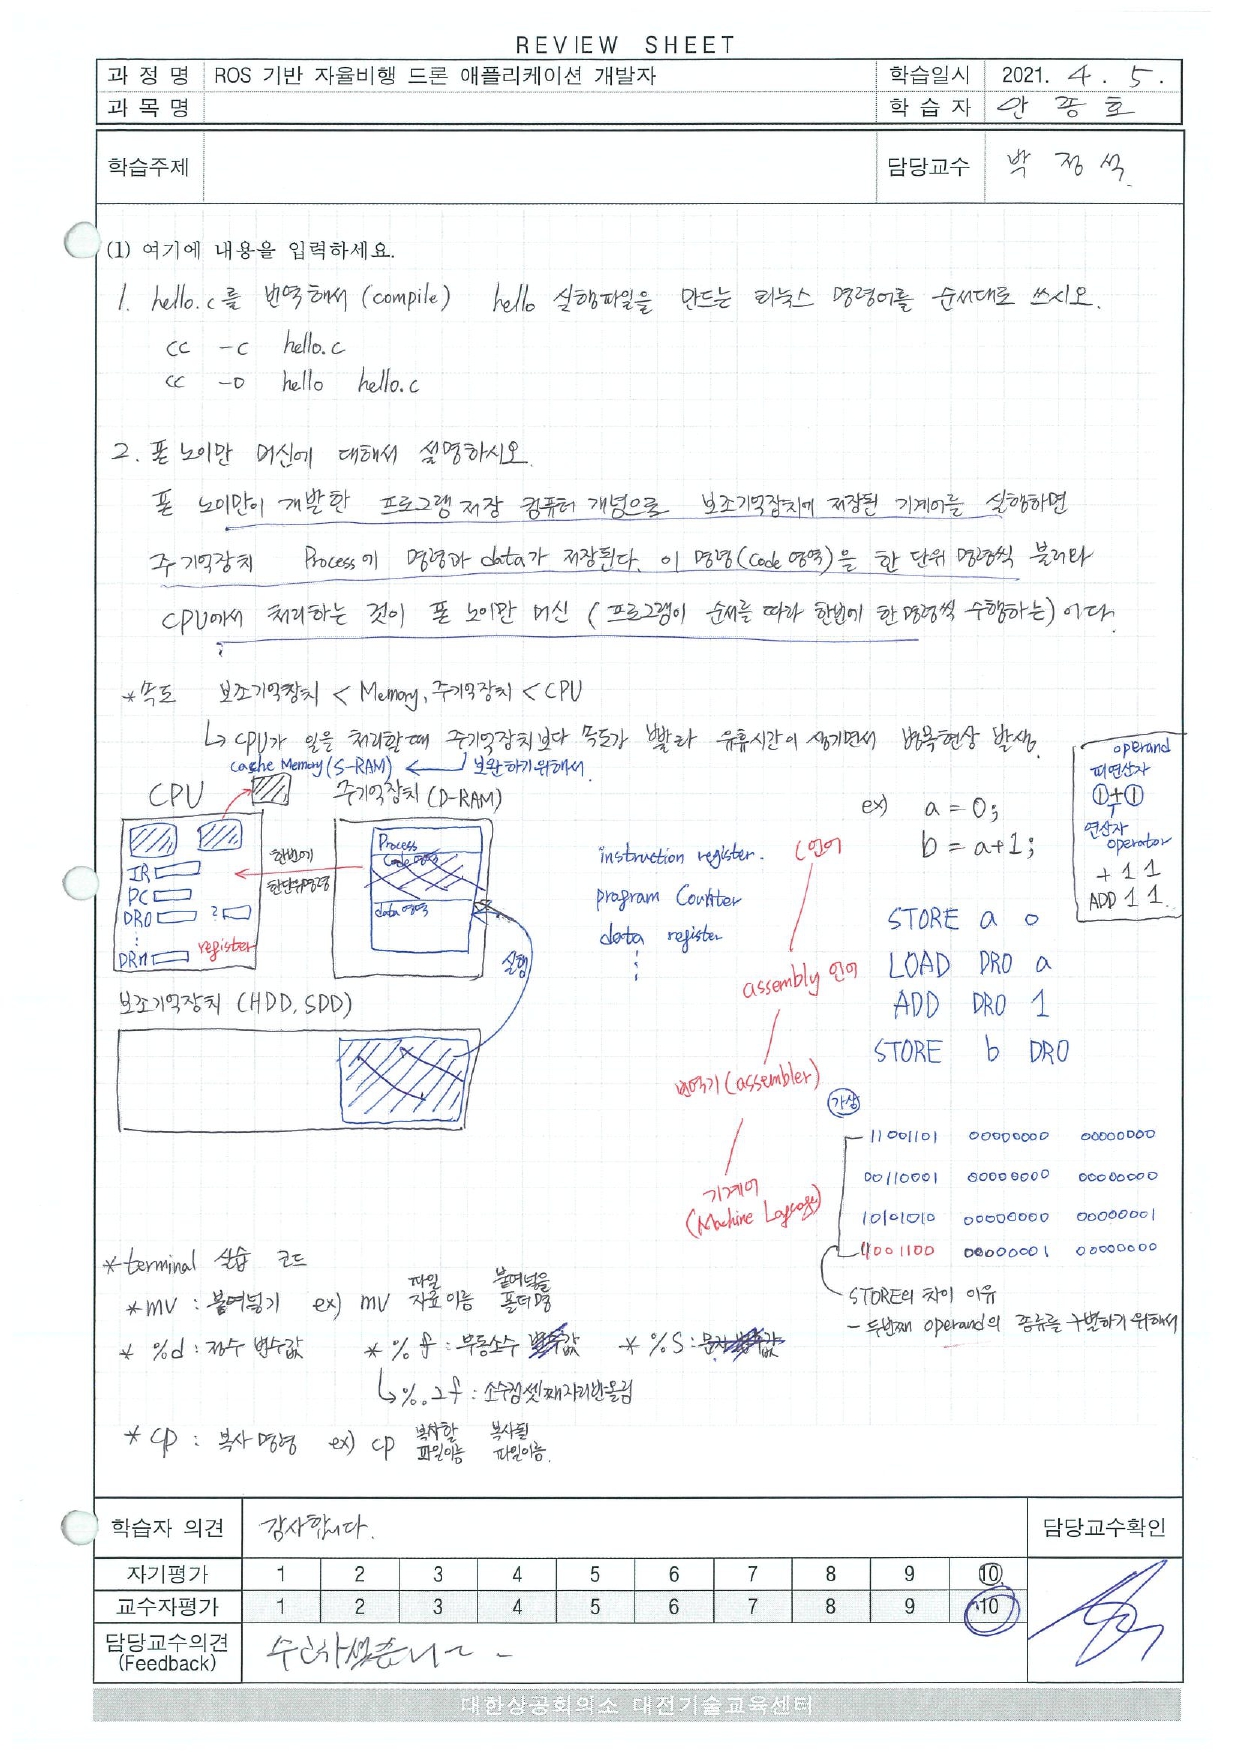 REVIEW SHEET
과 정 명 ROS 기반 자율비행 드론 애플리케이션 개발자 학습일시 2021. 4. 5.
과 목 명 학 습 자 안 종 호
학습주제 담당교수 박 정 석
(1) 여기에 내용을 입력하세요.
1. hello.c를 번역해서 (compile) hello 실행파일을 만드는 리눅스 명령어를 순서대로 쓰시오.
cc -c hello.c
cc -o hello hello.c
2. 폰 노이만 머신에 대해서 설명하시오.
폰 노이만이 개발한 프로그램 저장 컴퓨터 개념으로 보조기억장치에 저장된 기계어를 실행하면
주기억장치 Process에 명령과 data가 저장된다. 이 명령(Code 영역)을 한 단위 명령씩 불러와
CPU에서 처리하는 것이 폰 노이만 머신 (프로그램이 순서를 따라 한번에 한 명령씩 수행하는)이다.
*속도 보조기억장치 < Memory, 주기억장치 < CPU
↳ CPU가 일을 처리할때 주기억장치보다 속도가 빨라 유휴시간이 생기면서 병목현상 발생.
cache Memory(S-RAM) ← 보완하기위해서.
CPU 주기억장치 (D-RAM)
IR
PC
DR0
⋮
DRn
register
한번에
한단위명령
Process
Code 영역
data 영역
실행
보조기억장치 (HDD, SDD)
instruction register.
program Counter
data register
⋮
C언어
assembly 언어
번역기(assembler)
기계어
ex) a = 0;
b = a+1;
STORE a 0
LOAD DR0 a
ADD DR0 1
STORE b DR0
operand
피연산자
①+①
연산자
operator
+ 1 1
ADD 1 1
가상
11001101 00000000 00000000
00110001 00000000 00000000
10101010 00000000 00000001
11001100 00000001 00000000
STORE의 차이 이유
- 두번째 operand의 종류를 구별하기 위해서
*terminal 실습 코드
*mv : 붙여넣기 ex) mv 파일 자료이름 붙여넣을 폴더명
* %d : 정수 변수값 * %f : 부동소수 값 * %S : 값
↳ %.2f : 소수점셋째자리반올림
* cp : 복사 명령 ex) cp 복사할 파일이름 복사될 파일이름.
학습자 의견 감사합니다. 담당교수확인
자기평가 1 2 3 4 5 6 7 8 9 10
교수자평가 1 2 3 4 5 6 7 8 9 10
담당교수의견
(Feedback)
대한상공회의소 대전기술교육센터